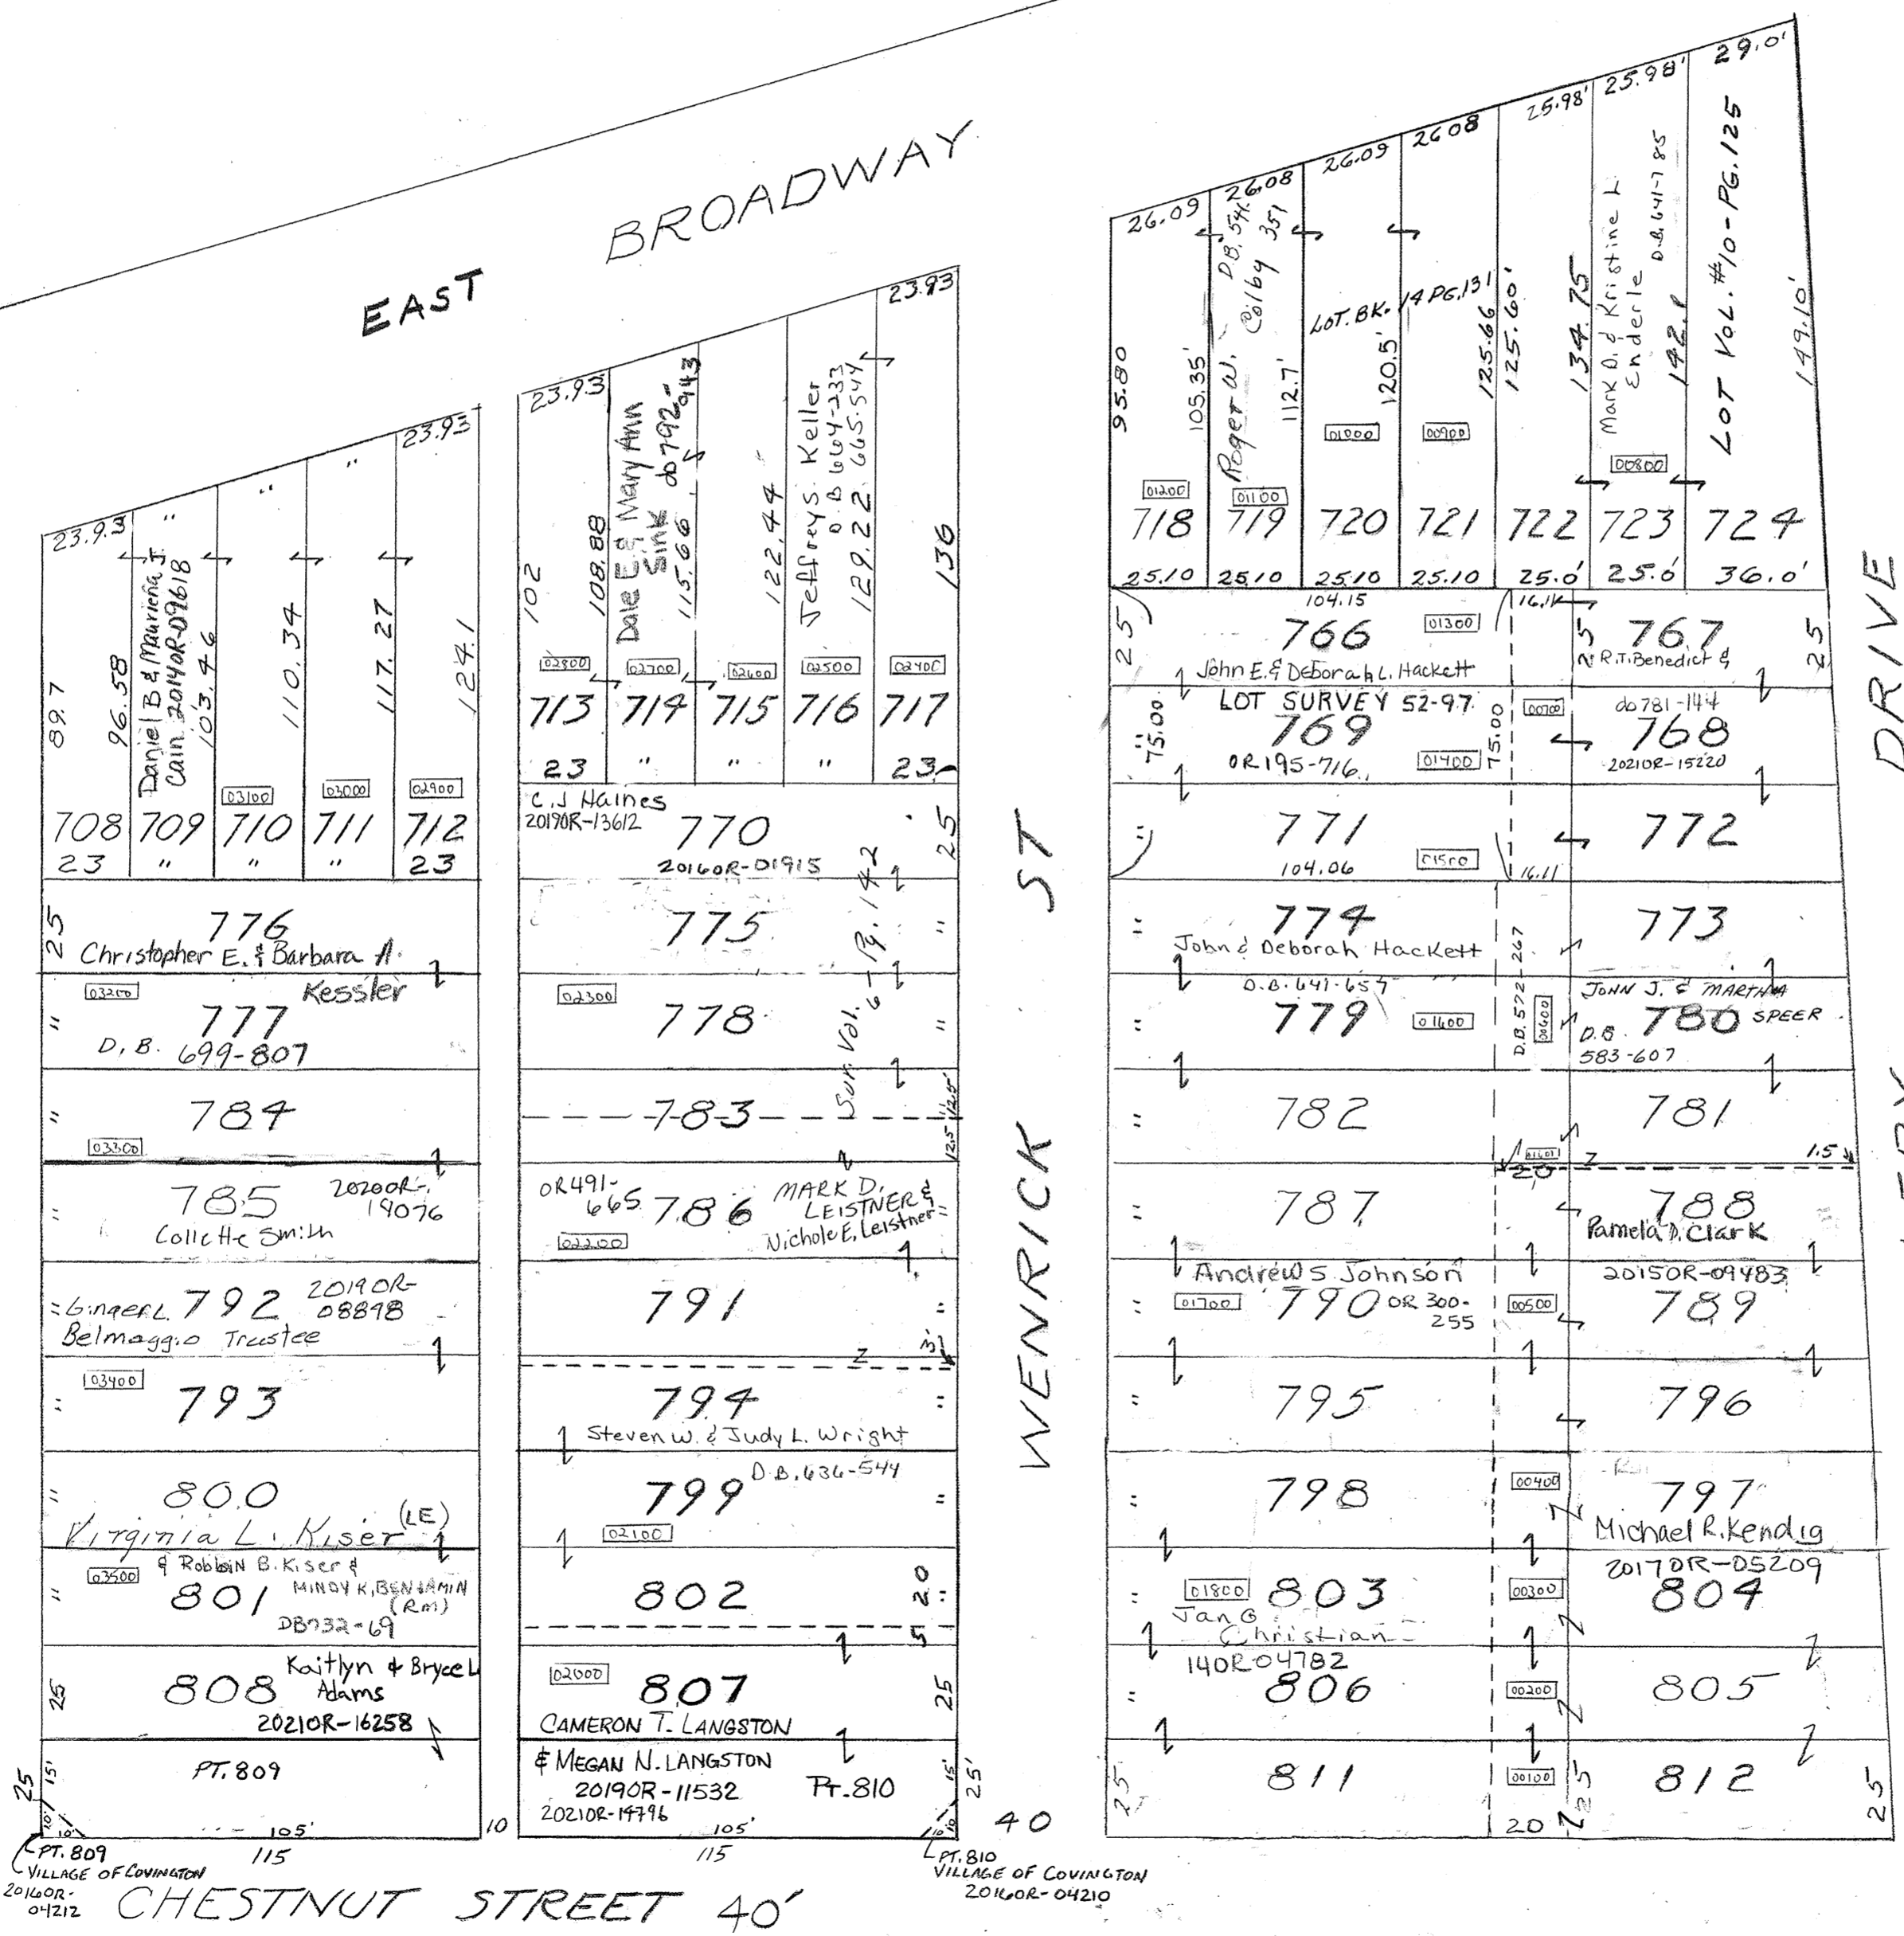 EAST BROADWAY
23.93
23.93
"
"
"
89.7
96.58
103.46
110.34
117.27
124.1
Daniel B & Mauriena J.
Cain 2014OR-09618
03100
03000
02900
708 709 710 711 712
23 " " " 23
25
776
Christopher E. & Barbara A.
Kessler
03200
"
777
D.B. 699-807
"
784
03300
"
785
2020OR-
19076
Collette Smith
"
Ginger L. 792 2019OR-
08898
Belmaggio Trustee
"
03400
793
"
800
Virginia L. Kiser (LE)
& Robbin B. Kiser &
03500
"
801
MINDY K. BENJAMIN
(Rm)
DB732-69
25
808
Kaitlyn & Bryce L
Adams
2021OR-16258
PT. 809
25
15'
10'
10'
105'
115
PT. 809
VILLAGE OF COVINGTON
2016OR-
04212
10
23.93
23.93
102
108.88
Dale E. & Mary Ann
Sink db 792-
943
115.66
122.44
Jeffrey S. Keller
D.B 664-233
665-544
129.22
136
02800
02700
02600
02500
02400
713 714 715 716 717
23 " " " 23
C.J Haines
2019OR-13612
770
2016OR-01915
25
775
"
02300
778
"
Sur. Vol. 6 - Pg. 142
783
12.5'
12.5'
OR491-
665
786
MARK D.
LEISTNER &
Nichole E. Leistner
"
02200
791
"
3'
794
"
Steven W. & Judy L. Wright
D.B. 636-544
799
"
02100
802
20
"
5
02000
807
25
CAMERON T. LANGSTON
& MEGAN N. LANGSTON
2019OR-11532
2021OR-14796
PT. 810
15'
25'
10'
10'
105'
115
PT. 810
VILLAGE OF COVINGTON
2016OR-04210
WENRICK ST
40
26.09
26.08
26.09
26.08
25.98'
25.98'
29.0'
95.80
105.35'
Roger W. Colby
D.B. 541-
351
112.7'
LOT. BK. 14 PG. 131
120.5'
125.66
125.60'
134.75
Mark D. & Kristine L
Enderle
D.B. 641-785
142.1
LOT VOL. #10-PG. 125
149.10'
01200
01100
01000
00900
00800
718 719 720 721 722 723 724
25.10 25.10 25.10 25.10 25.0' 25.0' 36.0'
25
104.15
16.14
766
01300
John E. & Deborah L. Hackett
25
767
25
R.T. Benedict &
LOT SURVEY 52-97
"
75.00
769
OR195-716
01400
75.00
00700
db781-144
768
2021OR-15220
"
771
104.06
01500
16.11
772
"
774
John & Deborah Hackett
D.B. 641-657
773
D.B. 572-267
00600
"
779
01600
JOHN J. & MARTHA
780 SPEER
D.B.
583-607
"
782
781
01601
20
1.5
"
787
788
Pamela D. Clark
2015OR-09483
Andrew S Johnson
"
01700
790
OR 300-
255
00500
789
"
795
796
"
798
00400
797
Michael R. Kendig
2017OR-05209
01800
803
Jan G
Christian
14OR04782
00300
804
"
806
00200
805
25
811
00100
25
812
25
20
DRIVE
CHESTNUT STREET 40'